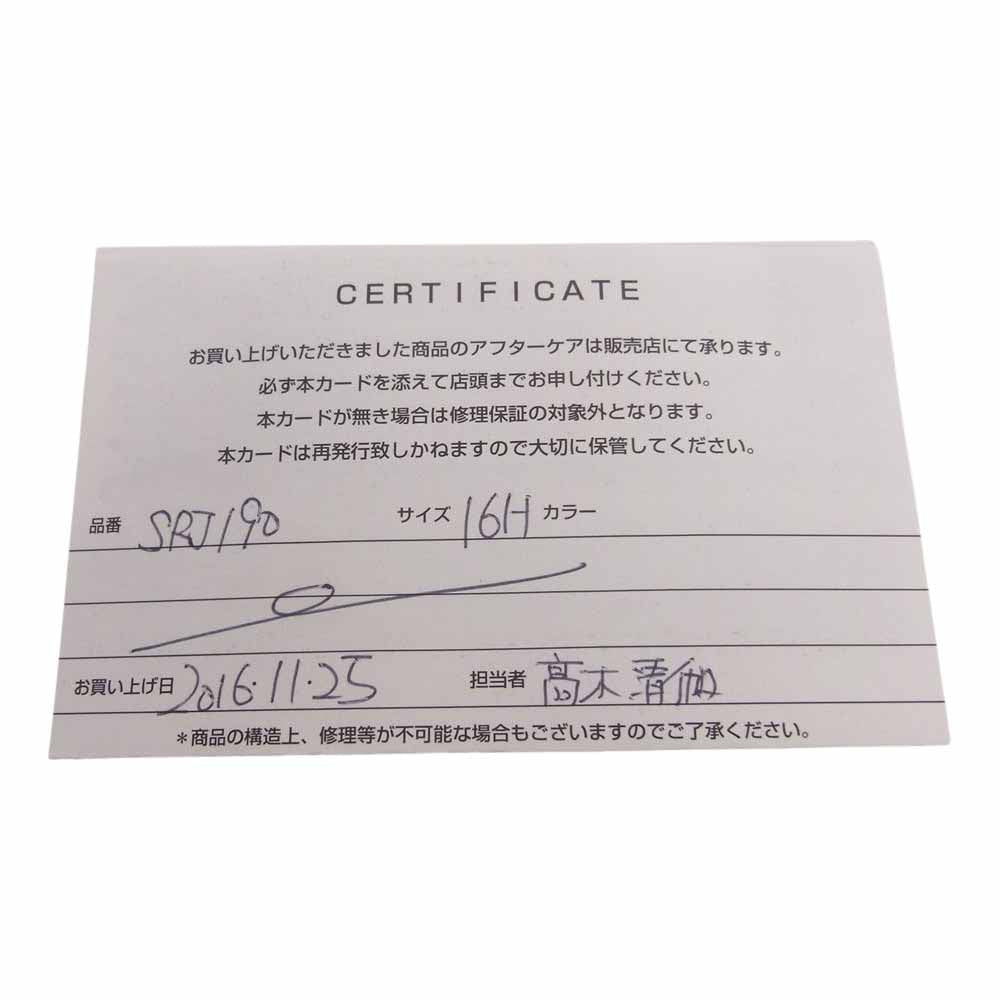 CERTIFICATE
お買い上げいただきました商品のアフターケアは販売店にて承ります。
必ず本カードを添えて店頭までお申し付けください。
本カードが無き場合は修理保証の対象外となります。
本カードは再発行致しかねますので大切に保管してください。
品番 SRJ190 サイズ 16H カラー
お買い上げ日 2016.11.25 担当者 髙木 清伽
*商品の構造上、修理等が不可能な場合もございますのでご了承ください。